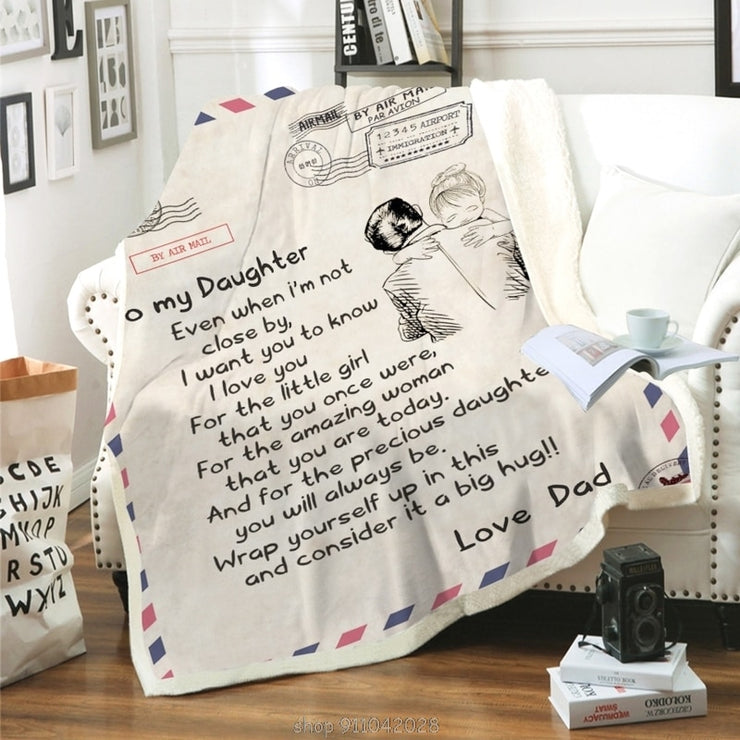 CENTU
AIRMAIL
BY AIR MA
PAR AVION
12345 AIRPORT
IMMIGRATION
ARRIVAL
BY AIR MAIL
o my Daughter
Even when i'm not
close by,
I want you to know
I love you
For the little girl
that you once were,
For the amazing woman
that you are today.
And for the precious daughte
you will always be.
Wrap yourself up in this
and consider it a big hug!!
Love Dad
CDE
GHIJK
MNOP
RSTU
WXYZ
WĘDRUJĄCY
ŚWIAT
GRZEGORZ W.
KOŁODKO
shop 911042028